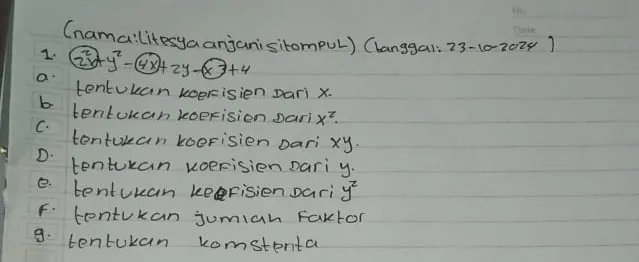 (nama: Litesya anjani sitompul) (tanggal: 23-10-2024)
1. 2x²+y²-4x+2y-x +4
a. tentukan koefisien Dari x.
b tentukan koefisien Dari x².
C. tentukan koefisien Dari xy.
D. tentukan koefisien Dari y.
e. tentukan keefisien Dari y²
F. tentukan jumlah Faktor
g. tentukan komstenta